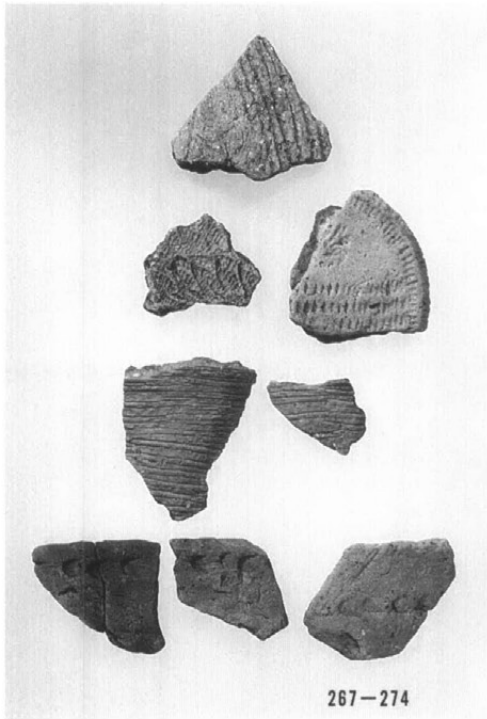 267—274